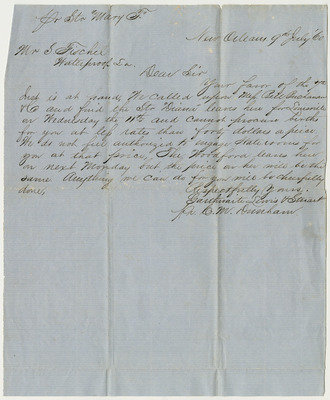 Pr Str Mary T.
New Orleans 9th July 60
Mr S Fischel
Waterproof La.
Dear Sir
Your favor of the 4th
Inst is at hand, We called upon
& Co and find the Str "Diana" leaves here for Louisville
on Wednesday the 11th and cannot procure births
for you at less rates than Forty dollars a piece.
We do not feel authorized to engage staterooms for
you at that price, The Woodford leaves here
on next Monday but the price on her will be the
same. Anything we can do for you will be cheerfully
done,
Respectfully Yours,
Stewart
pr C. M. Dunham.